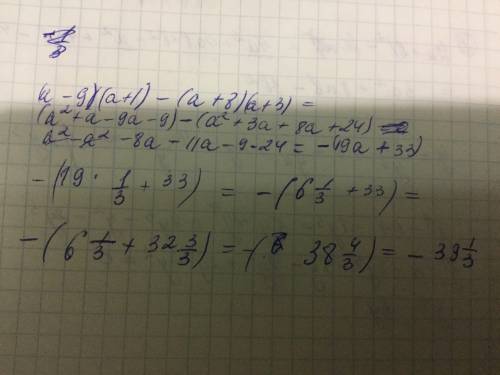 (a - 9)(a+1) - (a+8)(a+3) =
(a²+a-9a-9) - (a²+3a+8a+24)
a² - a² - 8a - 11a - 9 - 24 = -(19a + 33)
-(19 · 1/3 + 33) = -(6 1/3 + 33) =
-(6 1/3 + 32 3/3) = -( 38 4/3) = - 39 1/3